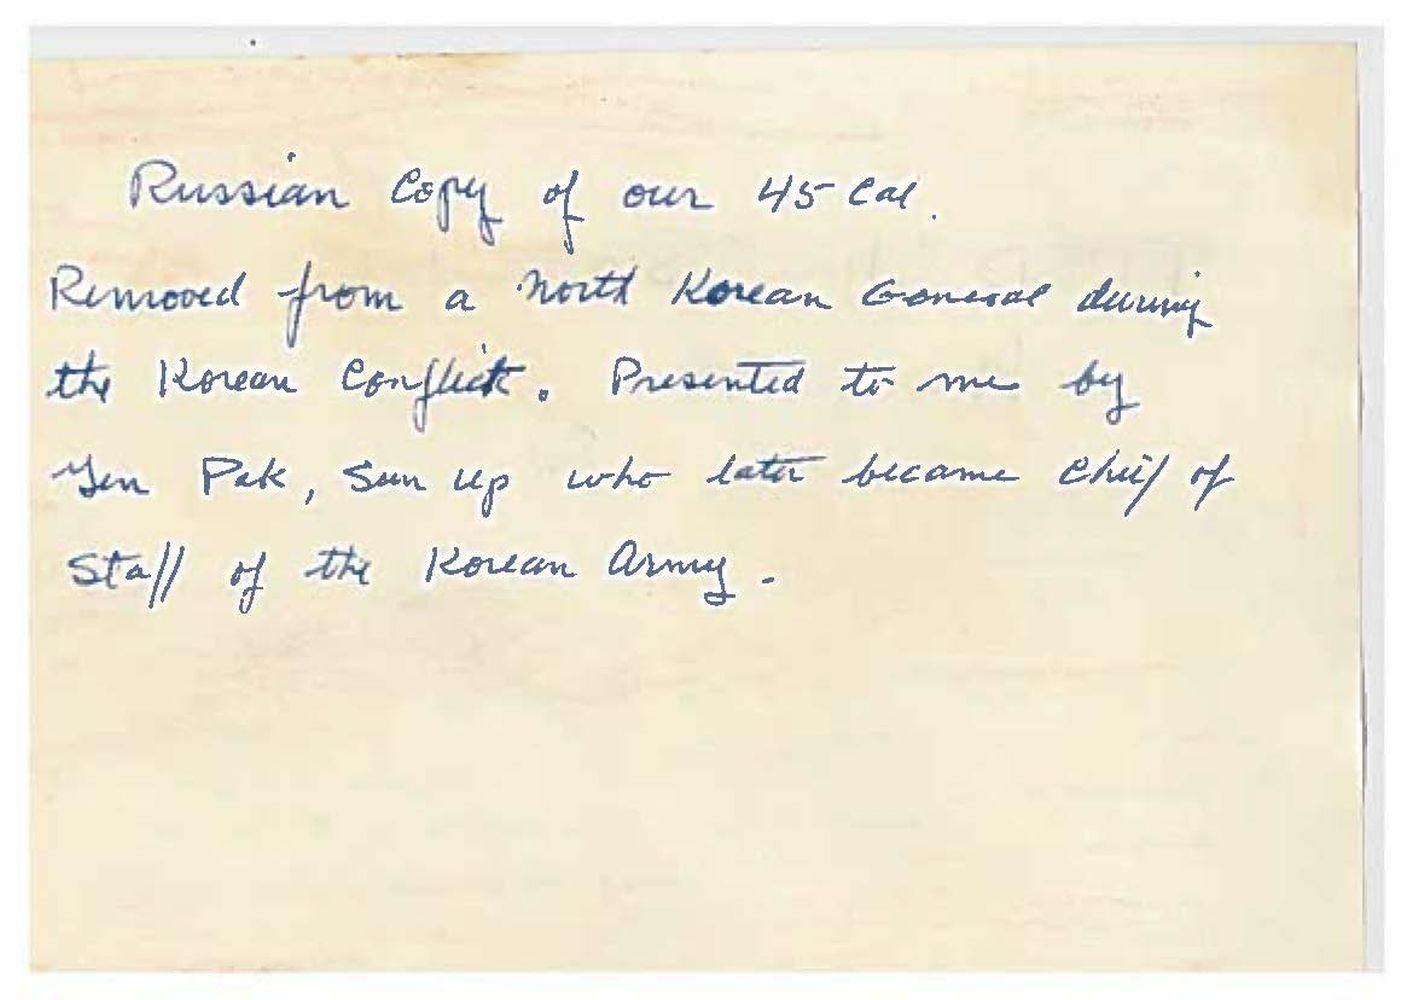 Russian Copy of our 45 Cal.
Removed from a North Korean General during
the Korean Conflict. Presented to me by
Gen Pak, Sun up who later became Chief of
Staff of the Korean Army.